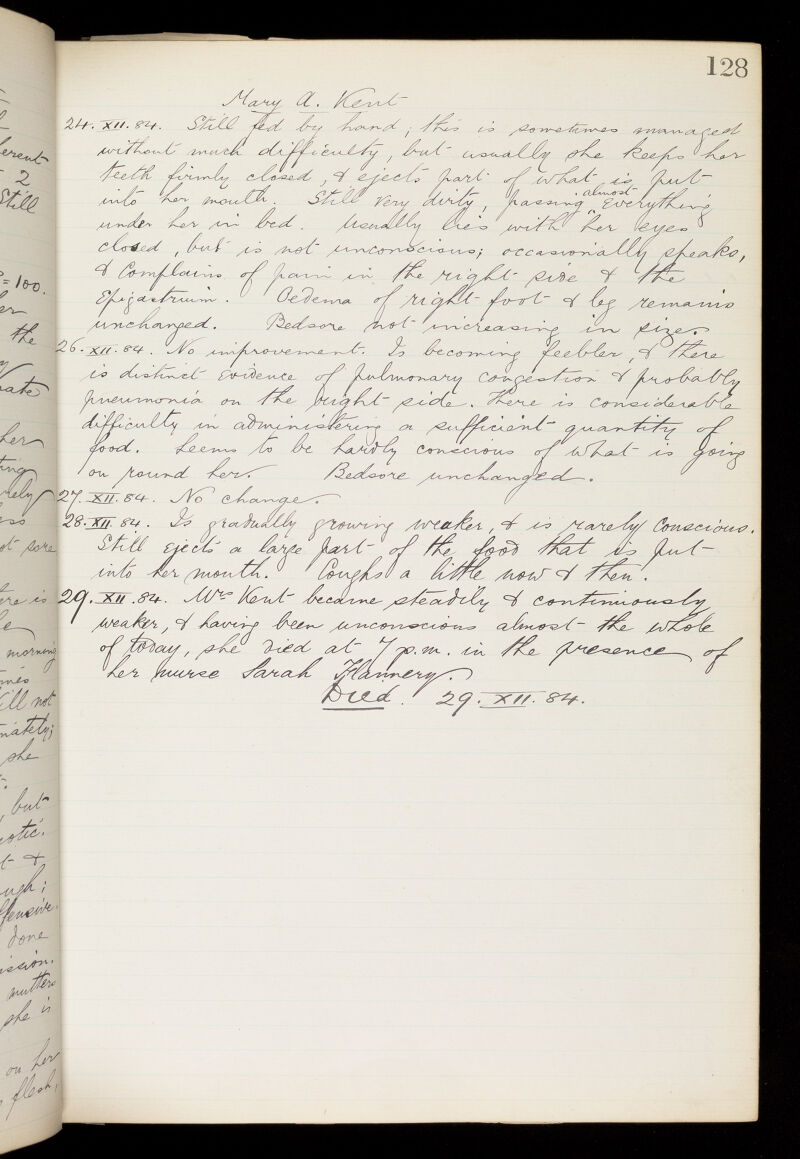 128
Mary A. Kent
24. XII. 84. Still fed by hand; this is sometimes managed
without much difficulty, but usually she keeps her
teeth firmly closed, & ejects part of what is put
into her mouth. Still very dirty, passing almost Everything
under her in bed. Usually lies with her eyes
closed, but is not unconscious; occasionally speaks,
& Complains of pain in the right side & the
Epigastrium. Oedema of right foot & leg remains
unchanged. Bedsore not increasing in size.
26. XII. 84. No improvement. Is becoming feebler, & there
is distinct Evidence of pulmonary congestion & probably
pneumonia on the right side. There is considerable
difficulty in administering a sufficient quantity of
food. Seems to be hardly conscious of what is going
on round her. Bedsore unchanged.
27. XII. 84. No change.
28. XII. 84. Is gradually growing weaker, & is rarely Conscious.
Still Ejects a large part of the food that is put
into her mouth. Coughs a little now & then.
29. XII. 84. Mrs Kent became steadily & continuously
weaker, & having been unconscious almost the whole
of today, she died at 7 p.m. in the presence of
her nurse Sarah Flannery.
Died. 29. XII. 84.
2
Still
= 100.
the
her
not sore
morning
ill not
she
but
&
done
mutters
she is
on her
flesh,